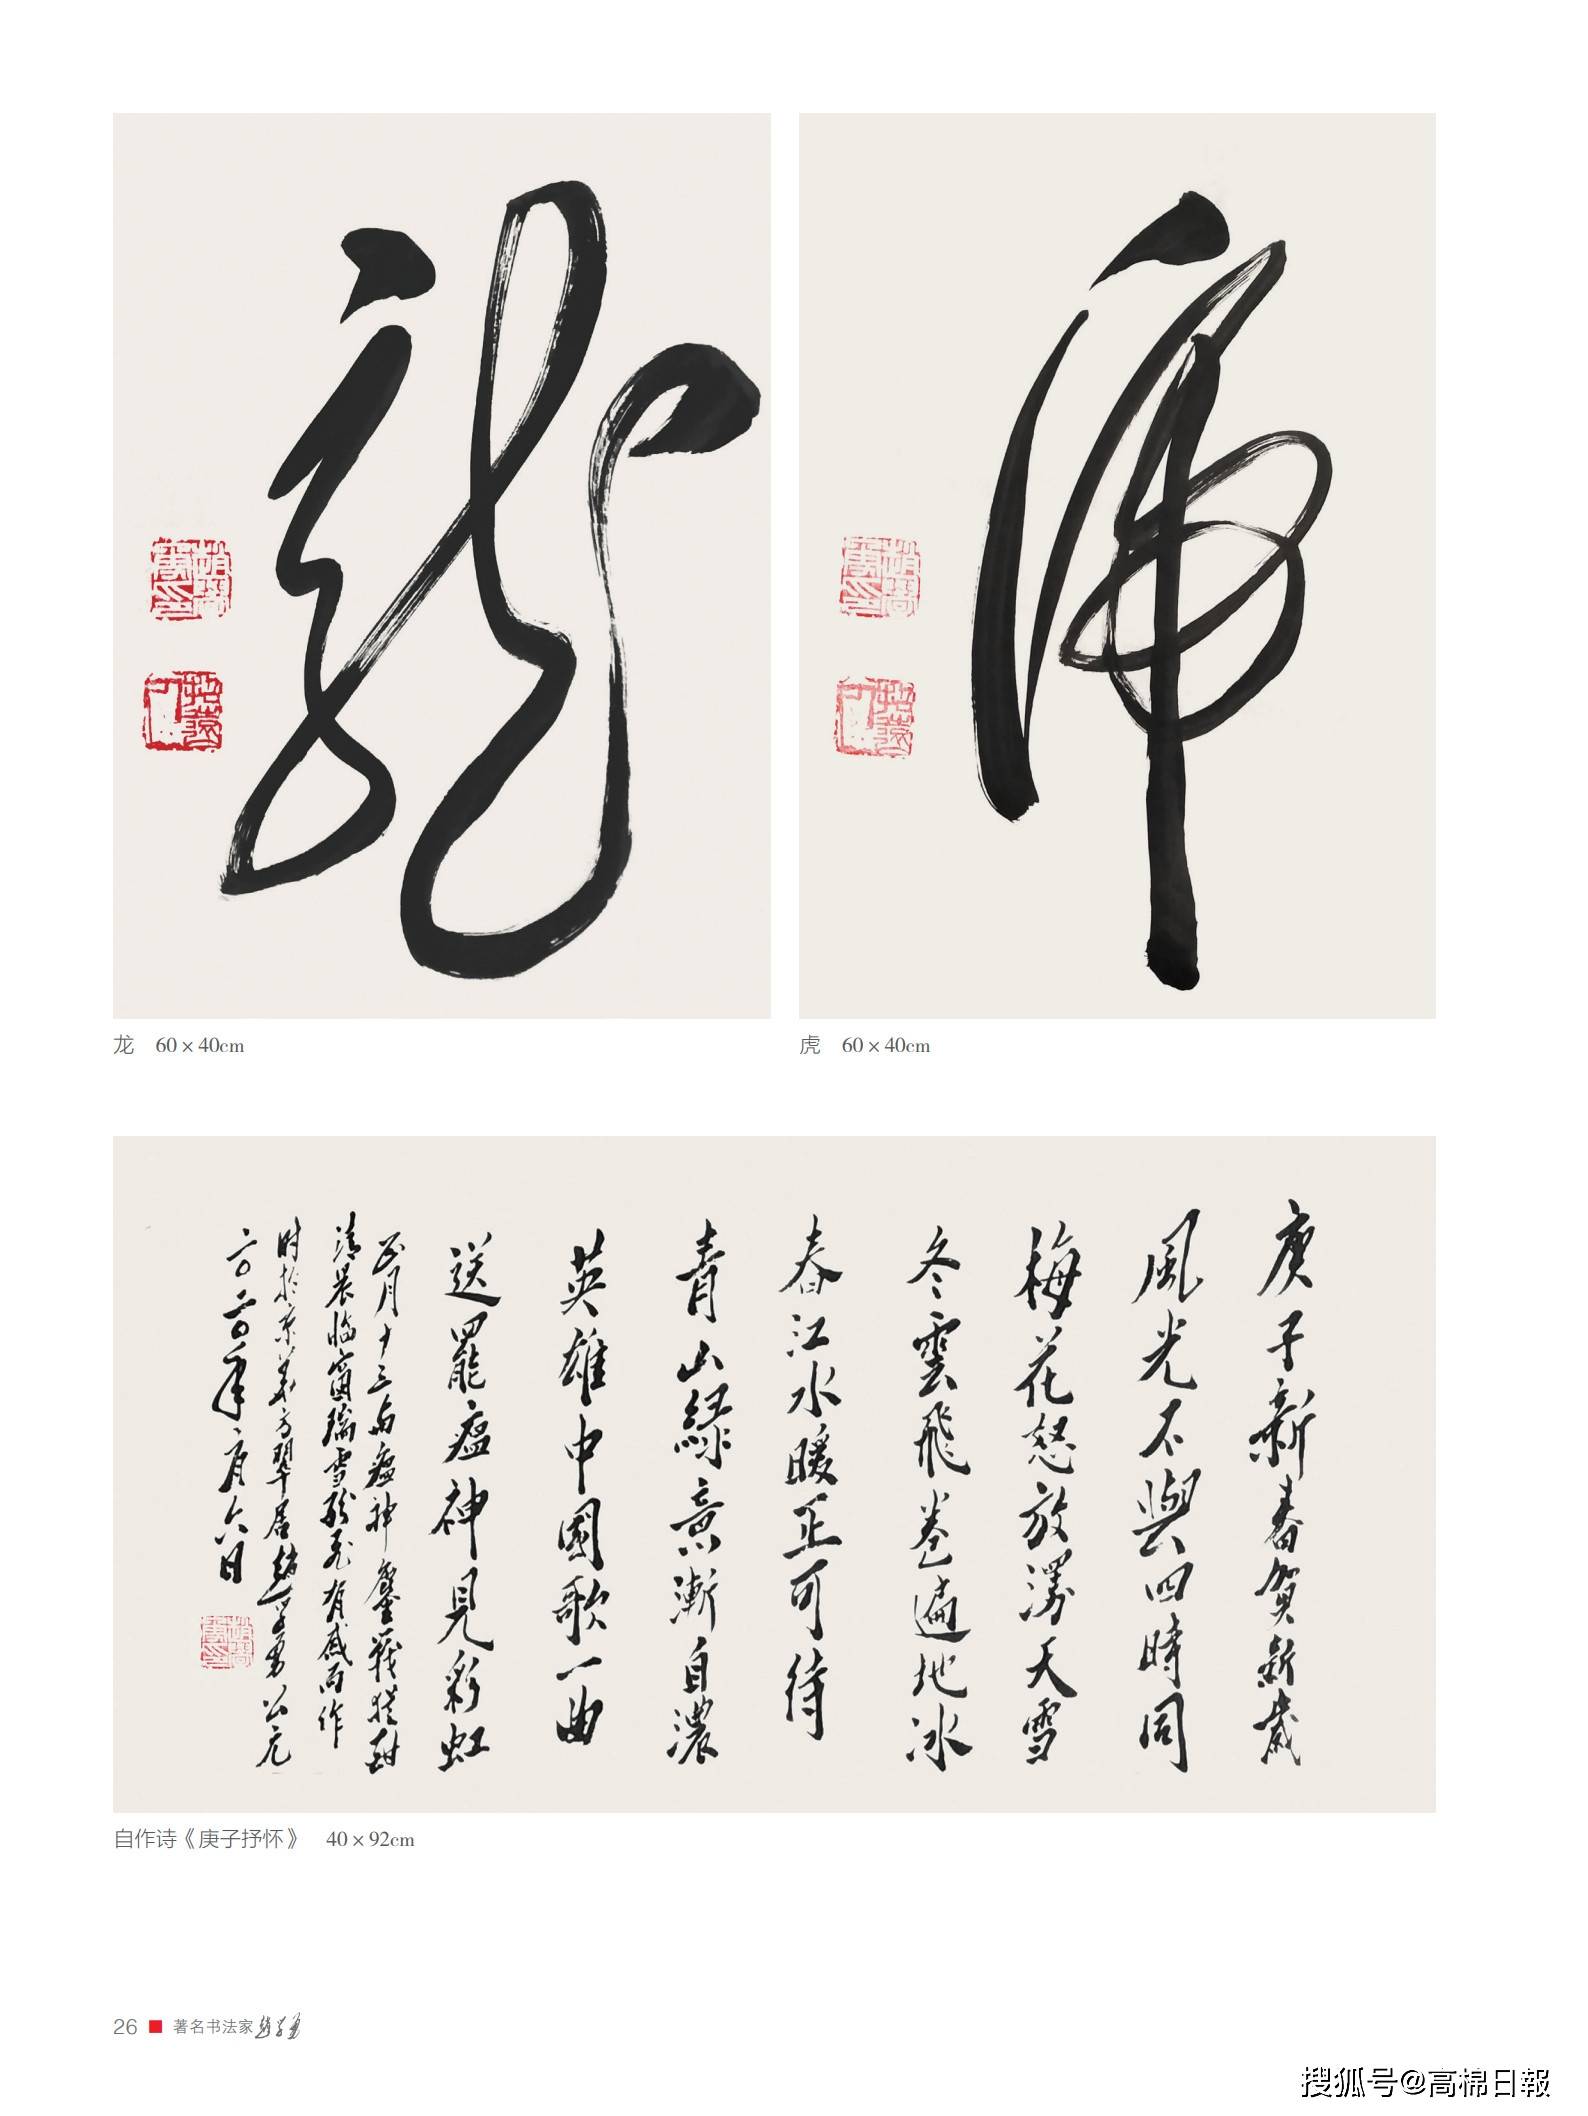 龍
龙 60×40cm
虎
虎 60×40cm
庚子新春賀新歲
風光不與四時同
梅花怒放漫天雪
冬雲飛卷遍地冰
春江水暖正可待
青山緑意漸自濃
英雄中國歌一曲
送罷瘟神見彩虹
正月十三與瘟神鏖戰猶酣
清晨臨窗瑞雪紛飛有感而作
时於京華方翠居趙学勇公元
二〇二〇年二月六日
自作诗《庚子抒怀》 40×92cm
26 著名书法家
搜狐号@高棉日報